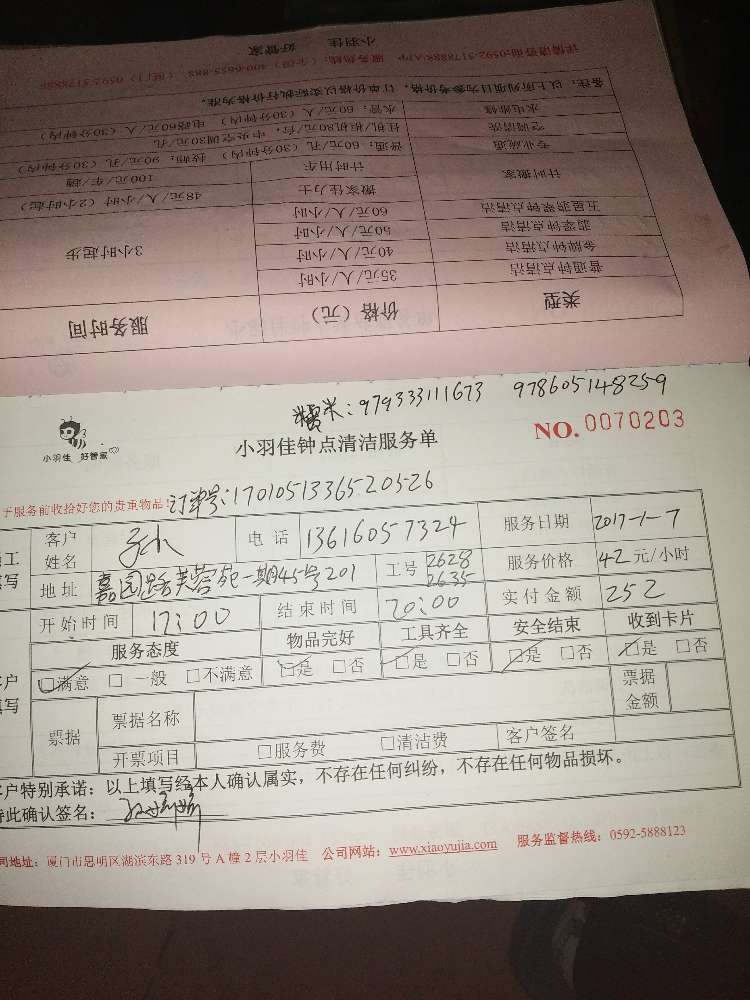 小羽佳 好管家
详情请咨询:0592-5178888/APP 服务热线:(全国)400-6655-885 (厦门)0592-5178885
类型 价格(元) 服务时间
普通钟点清洁 35元/人/小时 3小时起步
金牌钟点清洁 40元/人/小时
翡翠钟点清洁 50元/人/小时
五星翡翠钟点清洁 60元/人/小时
计时搬家 搬家佳力士 48元/人/小时(2小时起)
计时用车 100元/车/趟
专业疏通 普通:60元/孔(30分钟内) 技师:90元/孔(30分钟内)
空调清洗 挂机柜机80元/台,中央空调30元/孔
水电维修 水管:60元/人(30分钟内) 电路60元/人(30分钟内)
备注:以上所列项目为参考价格,订单价格以实际执行价格为准。
糯米:979333111673 978605148259
小羽佳 好管家
小羽佳钟点清洁服务单 NO. 0070203
于服务前收拾好您的贵重物品! 订单号:17010513365203526
客户姓名 电话 13616057324 服务日期 2017-1-7
地址 嘉园路芙蓉苑一期45号201 工号 2628 2635 服务价格 42元/小时
开始时间 17:00 结束时间 20:00 实付金额 252
服务态度 物品完好 工具齐全 安全结束 收到卡片
☑满意 □一般 □不满意 ☑是 □否 ☑是 □否 ☑是 □否 ☑是 □否
票据 票据名称 票据金额
开票项目 □服务费 □清洁费 客户签名
客户特别承诺:以上填写经本人确认属实,不存在任何纠纷,不存在任何物品损坏。
特此确认签名:
司地址:厦门市思明区湖滨东路319号A幢2层小羽佳 公司网站:www.xiaoyujia.com 服务监督热线:0592-5888123